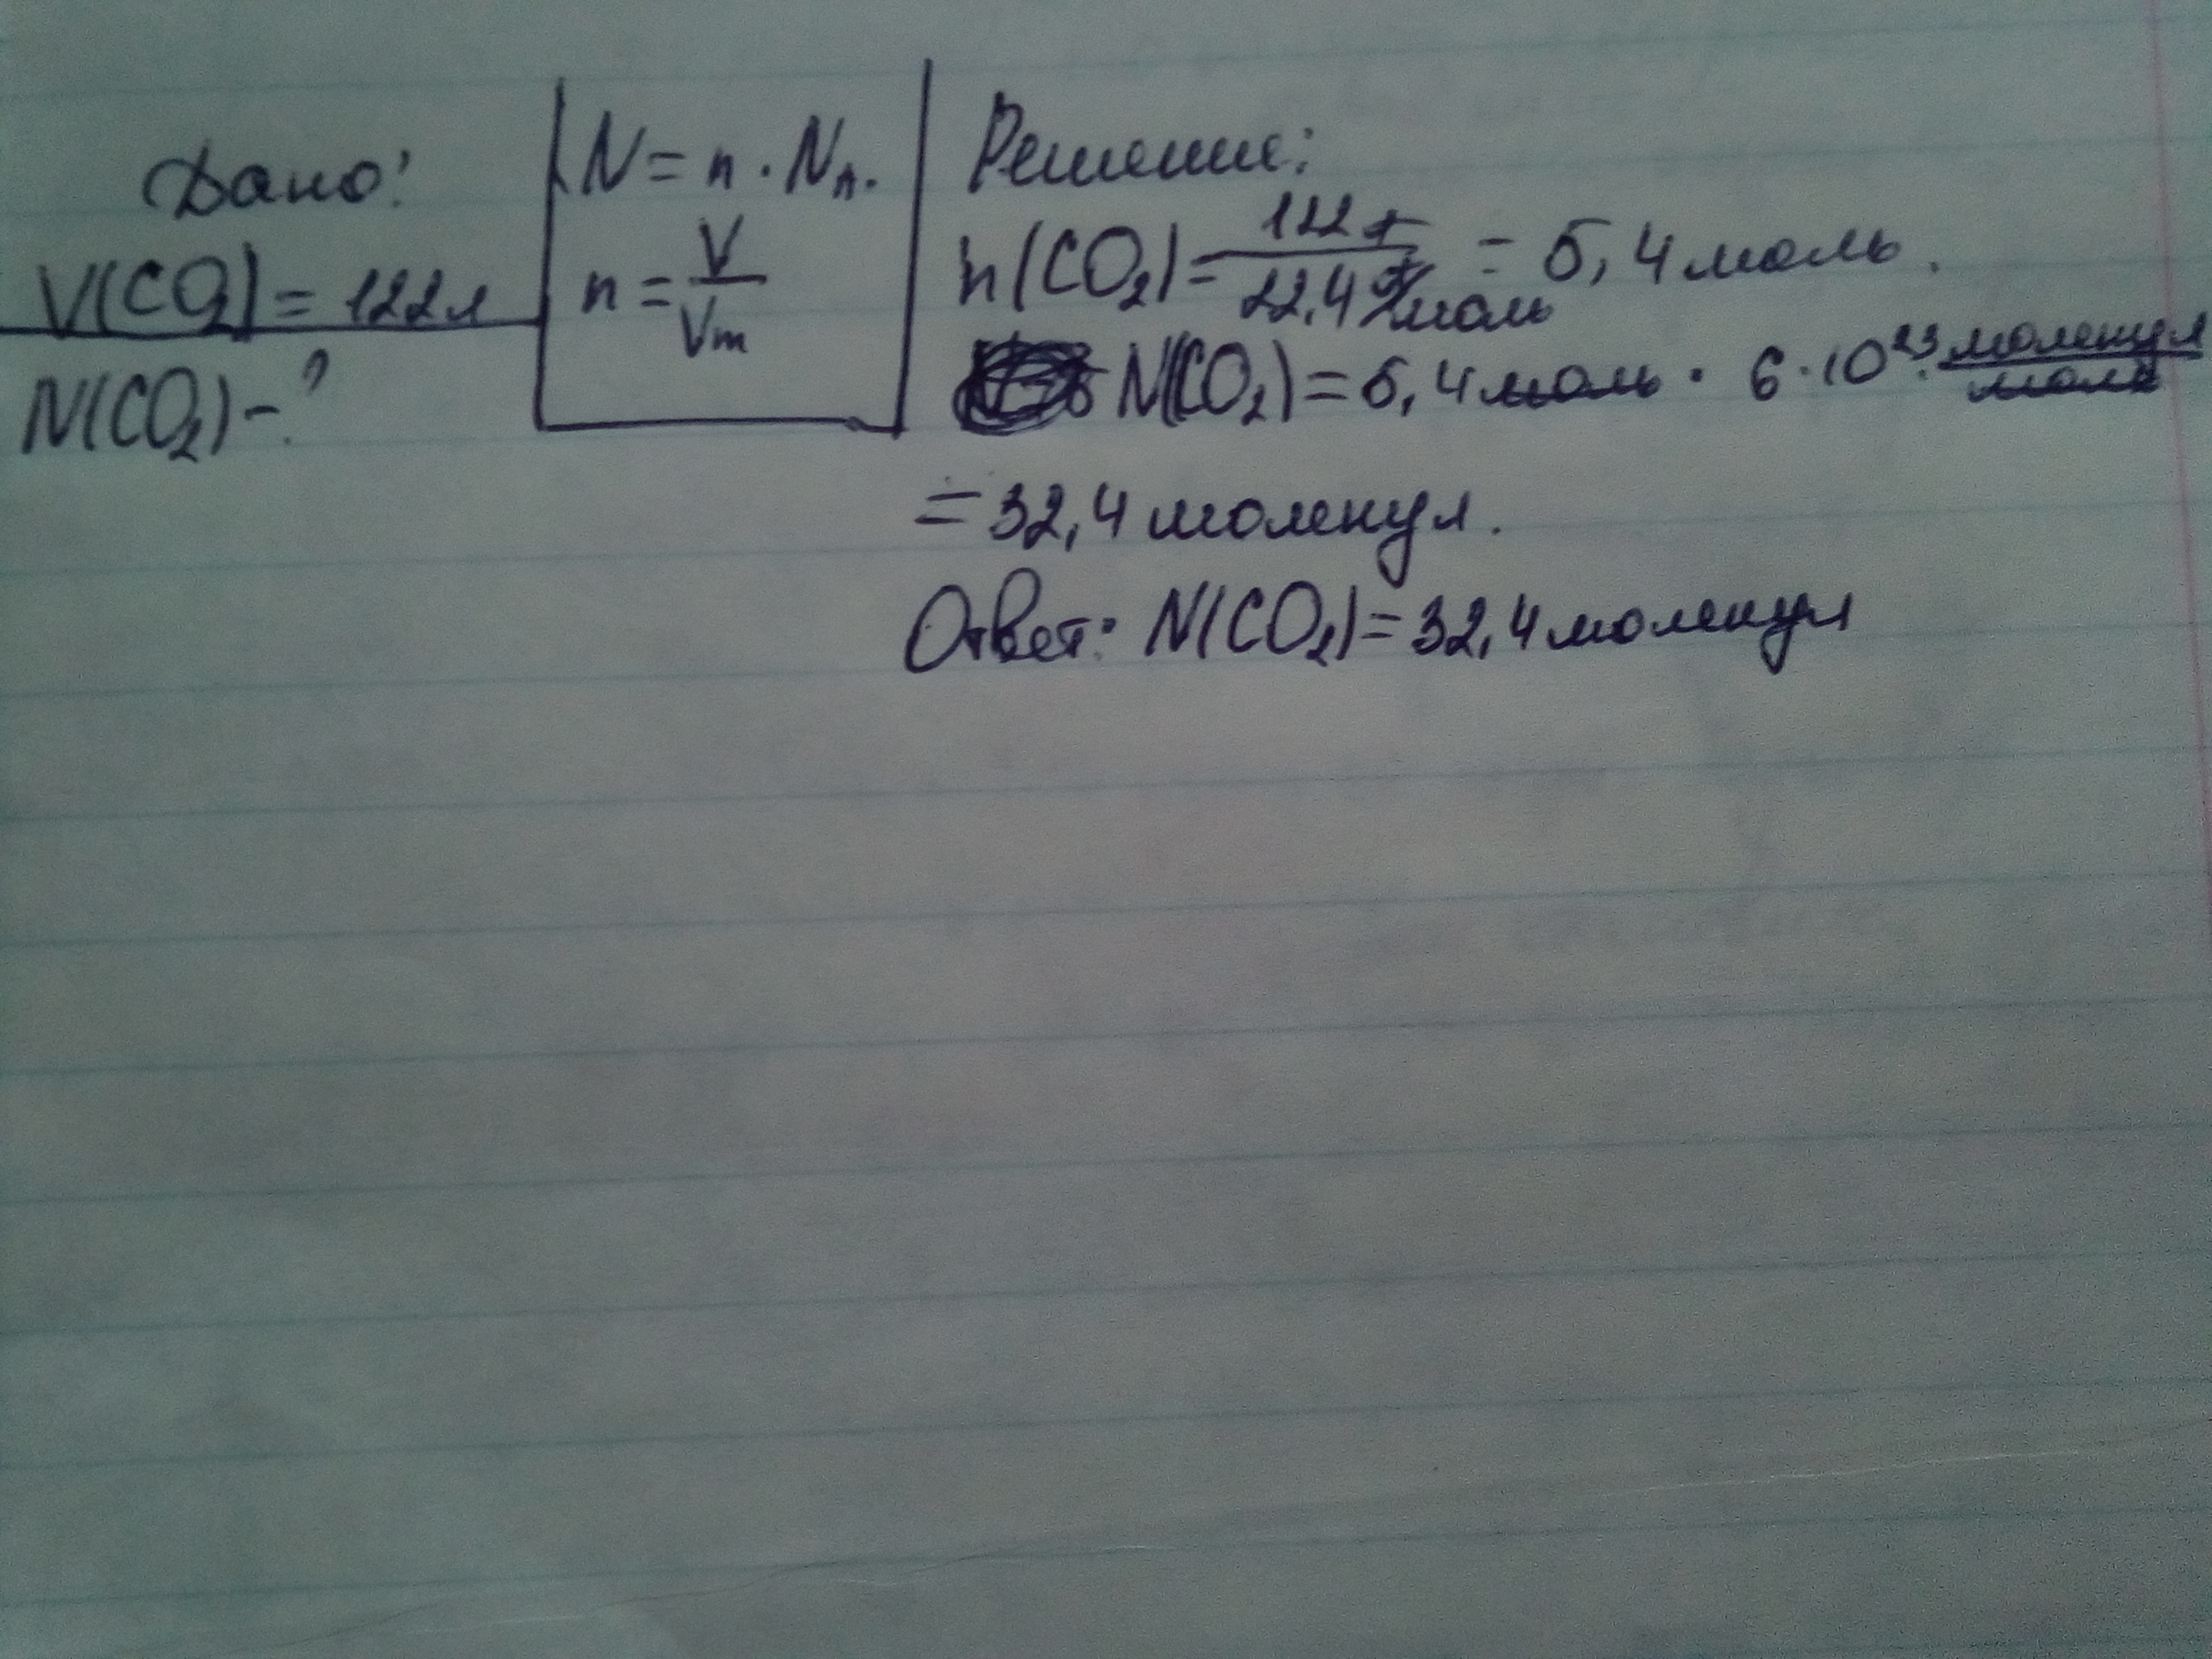 Дано:
V(CO₂) = 122л
N(CO₂) - ?
N = n · Nₐ.
n = V/Vm
Решение:
n(CO₂) = 122л/22,4 л/моль = 5,4 моль.
N(CO₂) = 5,4 моль · 6 · 10²³ молекул/моль
= 32,4 молекул.
Ответ: N(CO₂) = 32,4 молекул